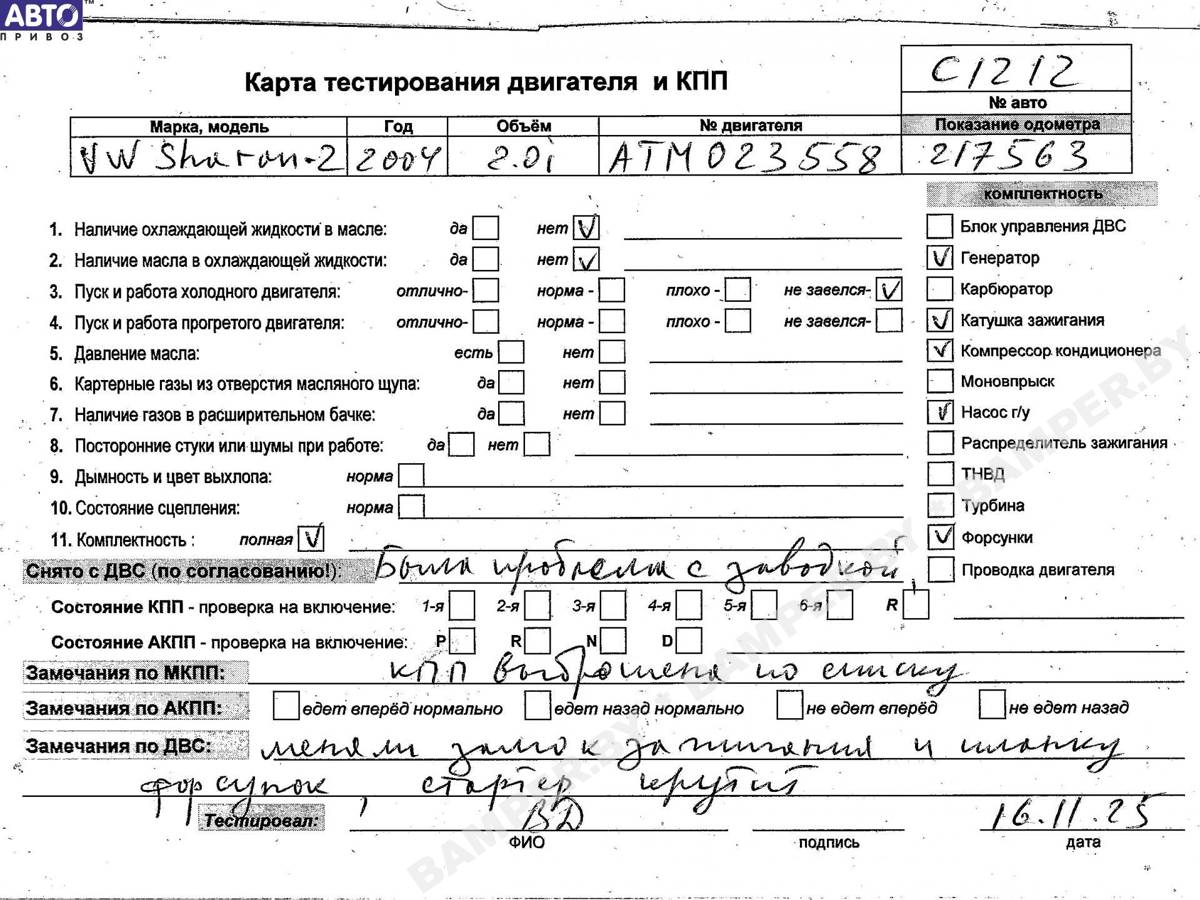 АВТО™
ПРИВОЗ
С1212
Карта тестирования двигателя и КПП
№ авто
Марка, модель Год Объём № двигателя Показание одометра
VW Sharan-2 2004 2.0i ATM 023558 217563
комплектность
1. Наличие охлаждающей жидкости в масле: да нет V
Блок управления ДВС
2. Наличие масла в охлаждающей жидкости: да нет V
V Генератор
3. Пуск и работа холодного двигателя: отлично- норма - плохо - не завелся- V
Карбюратор
4. Пуск и работа прогретого двигателя: отлично- норма - плохо - не завелся-
V Катушка зажигания
5. Давление масла: есть нет
V Компрессор кондиционера
6. Картерные газы из отверстия масляного щупа: да нет
Моновпрыск
7. Наличие газов в расширительном бачке: да нет
V Насос г/у
8. Посторонние стуки или шумы при работе: да нет
Распределитель зажигания
9. Дымность и цвет выхлопа: норма
ТНВД
10. Состояние сцепления: норма
Турбина
11. Комплектность : полная V
V Форсунки
Снято с ДВС (по согласованию!): Была проблема с заводкой,
Проводка двигателя
Состояние КПП - проверка на включение: 1-я 2-я 3-я 4-я 5-я 6-я R
Состояние АКПП - проверка на включение: P R N D
Замечания по МКПП: КПП выброшена по списку
Замечания по АКПП: едет вперёд нормально едет назад нормально не едет вперёд не едет назад
Замечания по ДВС: меняли замок зажигания и планку
форсунок, стартер крутит
Тестировал: ВД 16.11.25
ФИО подпись дата
BAMPER.BY • BAMPER.BY • BAMPER.BY • BAMPER.BY